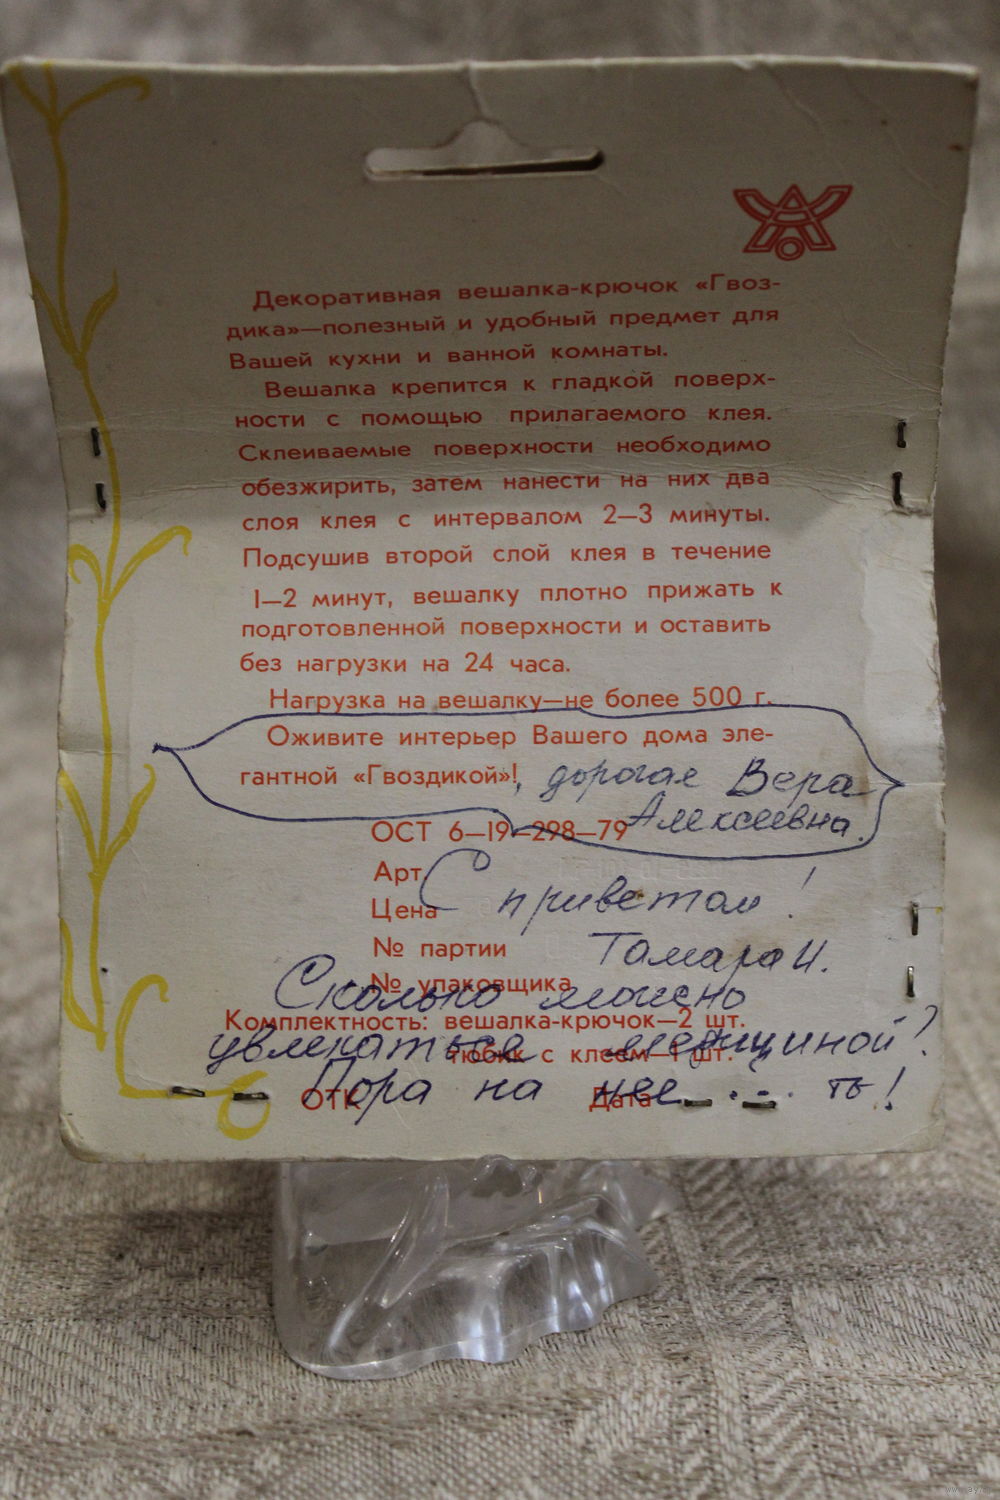 Декоративная вешалка-крючок «Гвоз-
дика»—полезный и удобный предмет для
Вашей кухни и ванной комнаты.
Вешалка крепится к гладкой поверх-
ности с помощью прилагаемого клея.
Склеиваемые поверхности необходимо
обезжирить, затем нанести на них два
слоя клея с интервалом 2—3 минуты.
Подсушив второй слой клея в течение
1—2 минут, вешалку плотно прижать к
подготовленной поверхности и оставить
без нагрузки на 24 часа.
Нагрузка на вешалку—не более 500 г.
Оживите интерьер Вашего дома эле-
гантной «Гвоздикой»!, дорогая Вера
Алексеевна.
ОСТ 6—19—298—79
Арт
С приветом!
Цена
№ партии
Тамара И.
№ упаковщика
Сколько можно
Комплектность: вешалка-крючок—2 шт.
увлекаться медициной?
тюбик с клеем—1 шт.
Пора на нее ... ть!
ОТК Дата